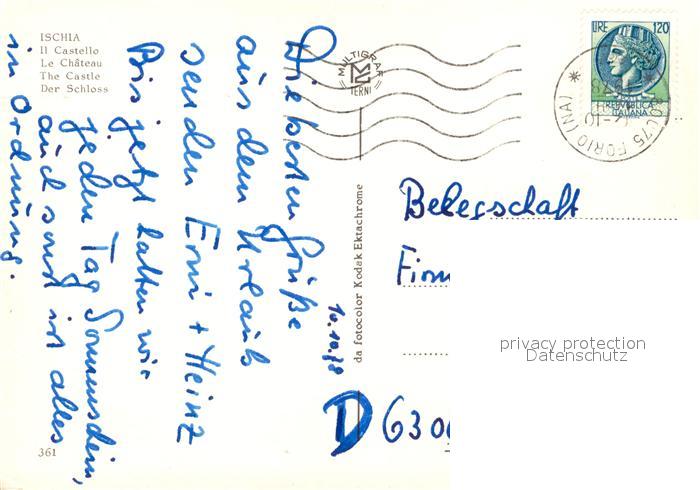 ISCHIA
Il Castello
Le Château
The Castle
Der Schloss
MULTIGRAF
TERNI
LIRE 120
REPUBBLICA
ITALIANA
FORIO (NA)
Die besten Grüße
aus dem Urlaub
senden Erni + Heinz
Bis jetzt hatten wir
jeden Tag Sonnenschein,
auch sonst ist alles
in Ordnung.
10.10.78
da fotocolor Kodak Ektachrome
Belegschaft
Firm
privacy protection
Datenschutz
D 6300
361